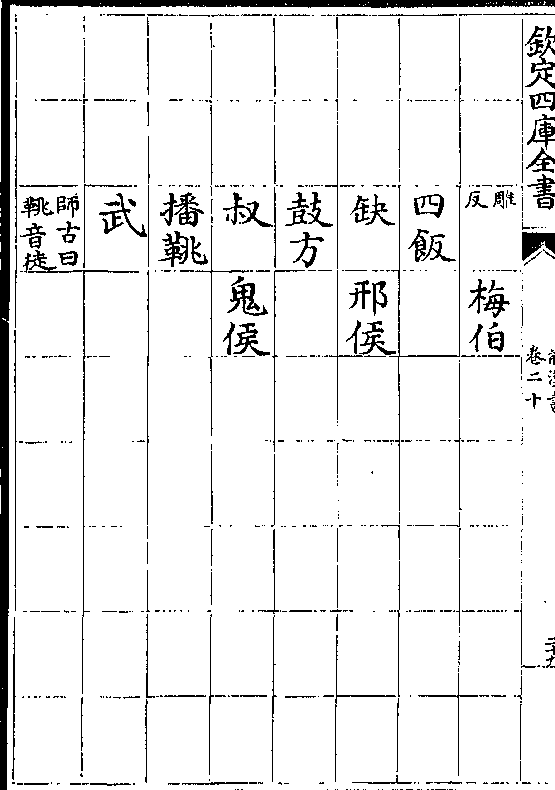 欽定四庫全書
前漢書
卷二十
雕
反
梅伯
四飯
缺
邢侯
鼓方
叔
鬼侯
播鞉
武
師古曰
鞉音徒